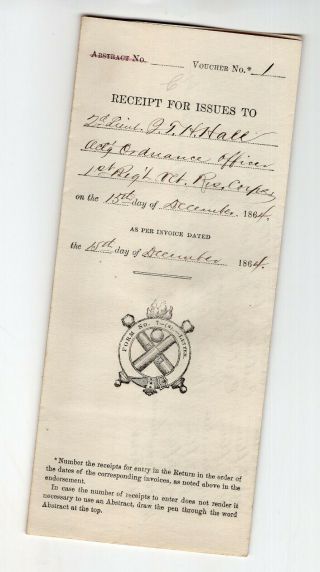 Abstract No. Voucher No.* 1
RECEIPT FOR ISSUES TO
2d Lieut. J. T. H. Hall
Actg Ordnance Officer
1st Regt Vet. Res. Corps,
on the 15th day of December, 1864.
AS PER INVOICE DATED
the 15th day of December 1864.
FORM No. 7—(a).
*Number the receipts for entry in the Return in the order
of the dates of the corresponding invoices, as noted above in the
endorsement.
In case the number of receipts to enter does not render it
necessary to use an Abstract, draw the pen through the word
Abstract at the top.